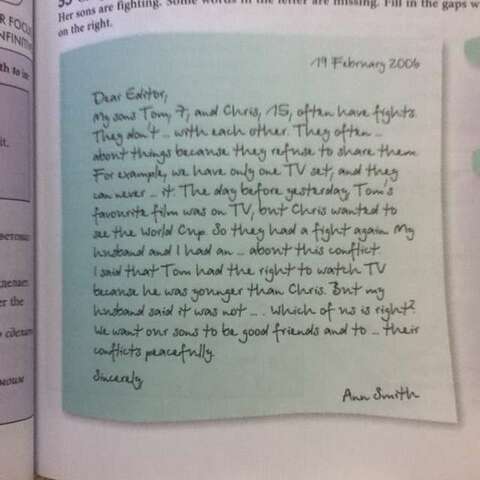 Her sons are fighting. Some words in the letter are missing. Fill in the gaps
on the right.
R FOCU
NFINITI
th to in
it.
er the
19 February 2006
Dear Editor,
My sons Tom, 7, and Chris, 15, often have fights.
They don't ... with each other. They often ...
about things because they refuse to share them.
For example, we have only one TV set, and they
can never ... it. The day before yesterday, Tom's
favourite film was on TV, but Chris wanted to
see the World Cup. So they had a fight again. My
husband and I had an ... about this conflict.
I said that Tom had the right to watch TV
because he was younger than Chris. But my
husband said it was not ... . Which of us is right?
We want our sons to be good friends and to ... their
conflicts peacefully.
Sincerely
Ann Smith